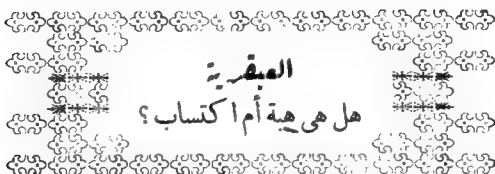 العبقرية
هل هى هبة أم اكتساب؟